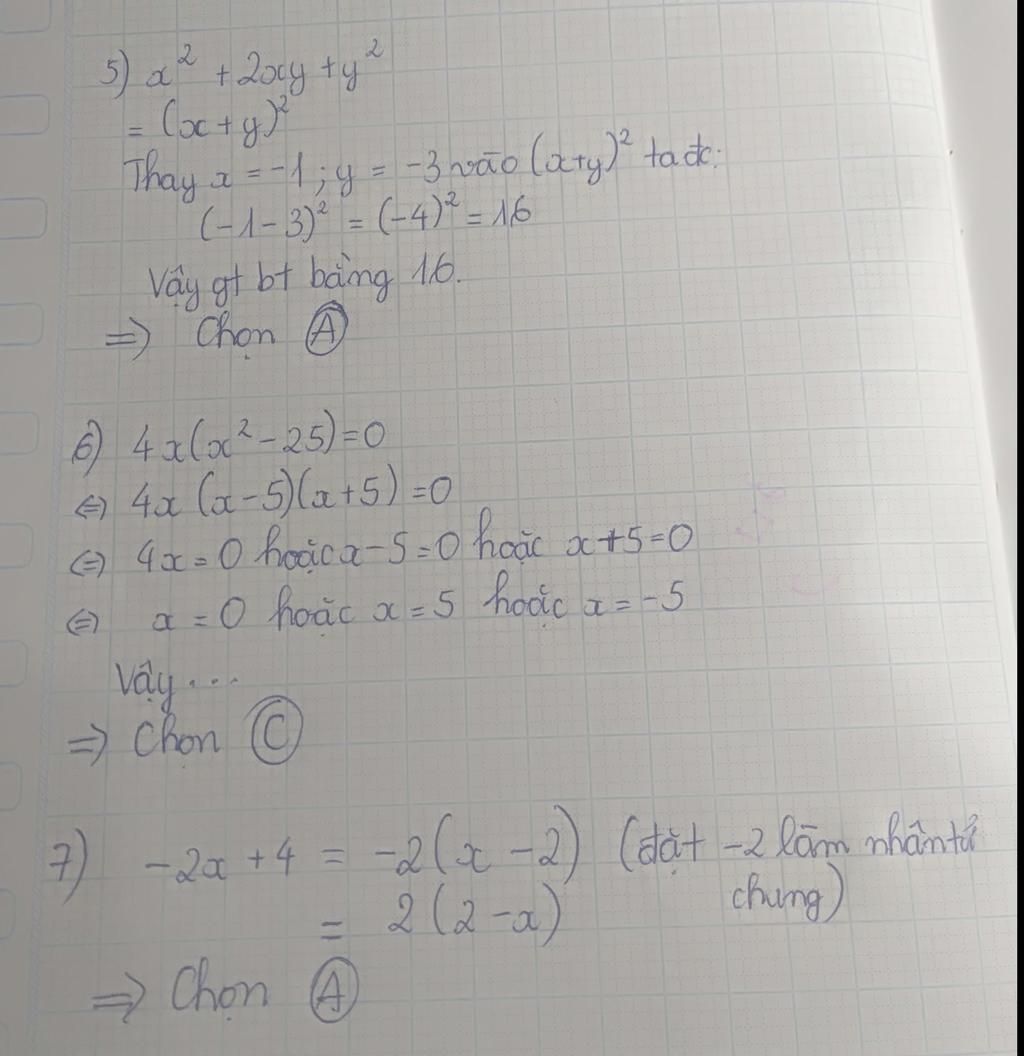 5) x² + 2xy + y²
= (x+y)²
Thay x = -1 ; y = -3 vào (x+y)² ta đc:
(-1-3)² = (-4)² = 16
Vậy gt bt bằng 16.
=> Chọn A
6) 4x(x² - 25) = 0
<=> 4x (x-5)(x+5) = 0
<=> 4x = 0 hoặc x-5=0 hoặc x+5=0
<=> x = 0 hoặc x = 5 hoặc x = -5
Vậy...
=> Chọn C
7) -2x + 4 = -2(x - 2) (đặt -2 làm nhân tử
chung)
= 2(2-x)
=> Chọn A